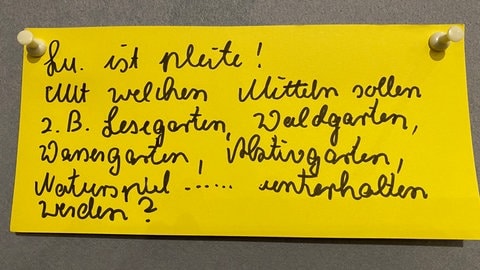 Lu. ist pleite!
Mit welchen Mitteln sollen
z.B. Lesegarten, Waldgarten,
Wassergarten, Aktivgarten,
Naturspiel ...... unterhalten
werden?